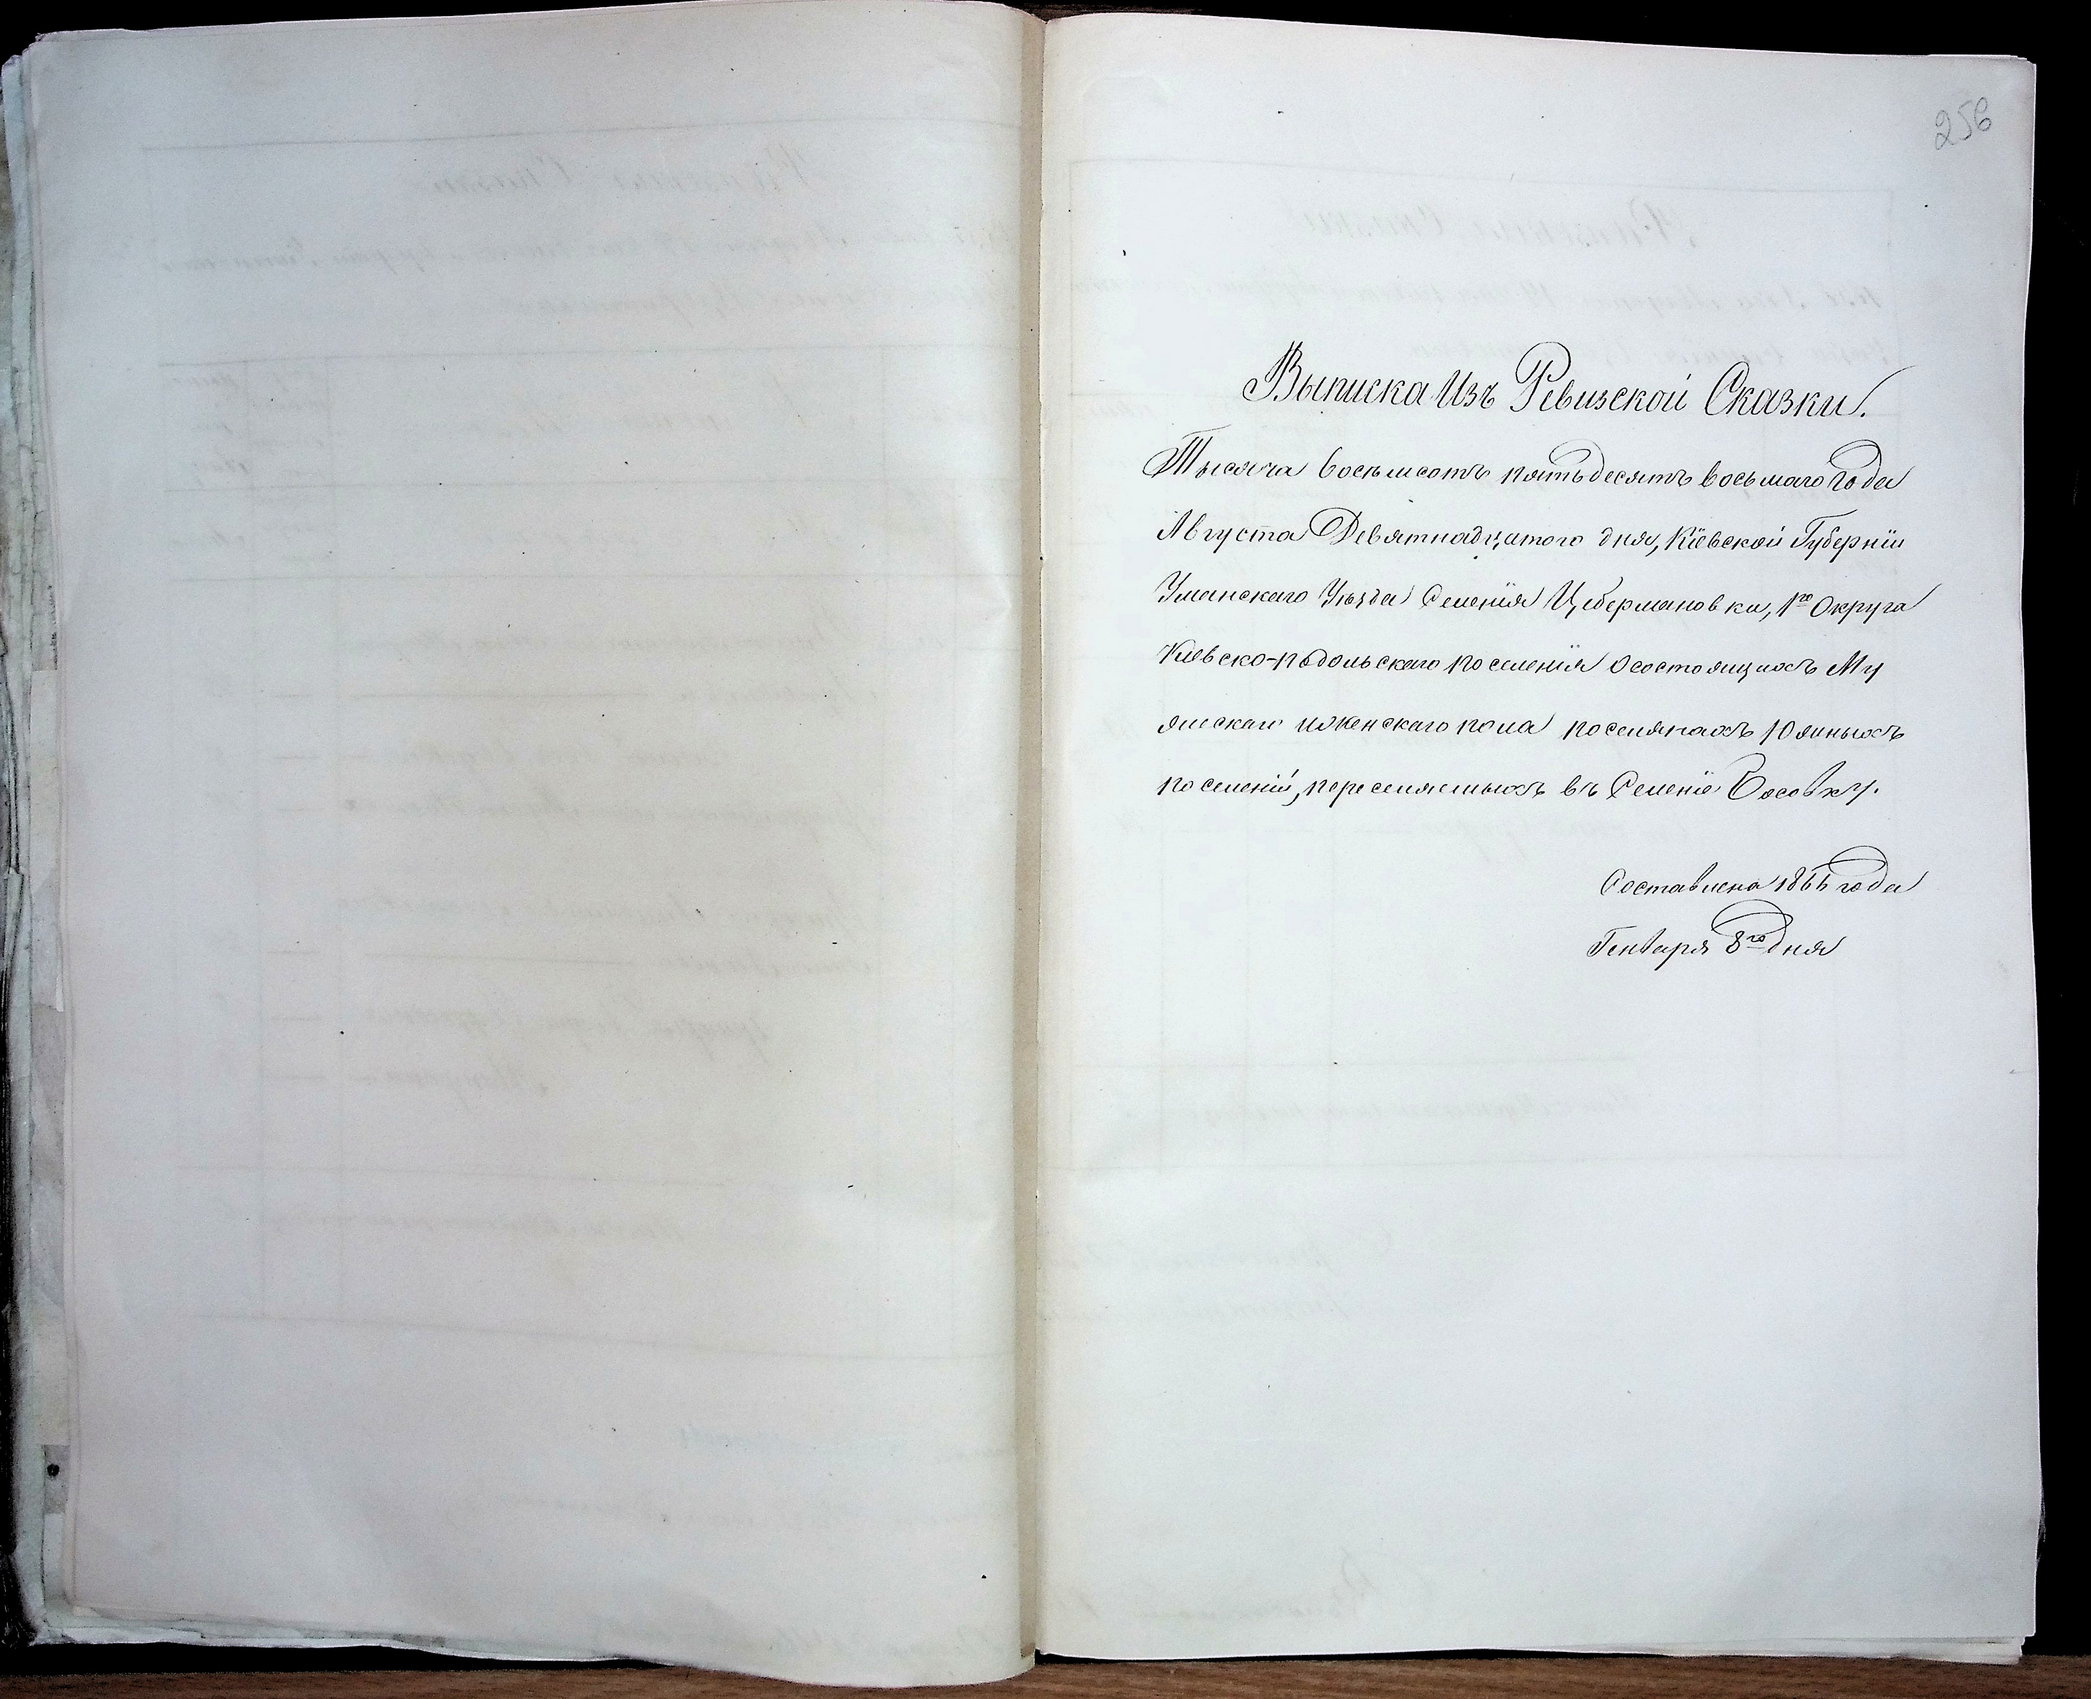 256
Выписка Изъ Ревизской Сказки.
Тысяча восемьсотъ пятьдесятъ восьмаго года
Августа Девятнадцатого дня, Кіевской Губерніи
Уманскаго Уѣзда Селенія Цебермановки, 1го Округа
Кіевско-подольскаго поселенія о состоящихъ Му
жескаго и женскаго пола поселянахъ Южныхъ
поселеній, переселяемыхъ въ Селеніе
Составлена года
Генваря 8го дня